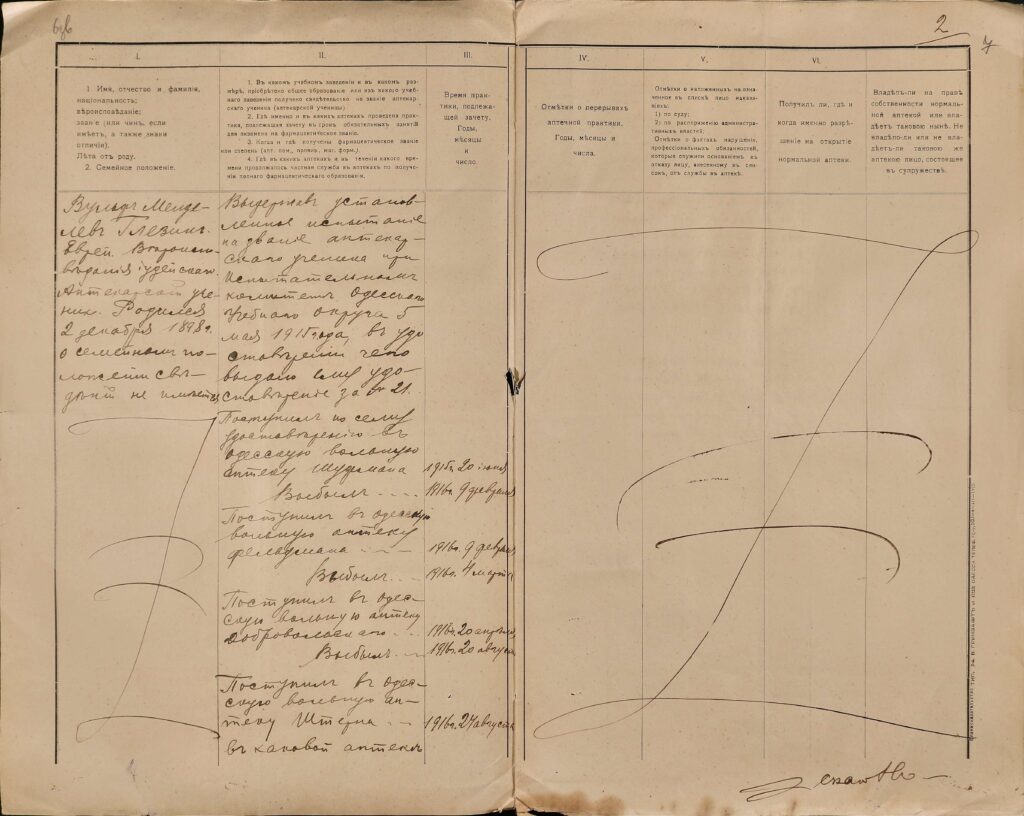 2
7
I.
II.
III.
IV.
V.
VI.
1 Имя, отчество и фамилія,
національность;
вѣроисповѣданіе;
званіе (или чинъ, если
имѣетъ, а также знаки
отличія).
Лѣта отъ роду.
2. Семейное положеніе.
1. Въ какомъ учебномъ заведеніи и въ какомъ раз-
мѣрѣ, пріобрѣтено общее образованіе или изъ какого учеб-
наго заведенія получено свидѣтельство на званіе аптекар-
скаго ученика (аптекарской ученицы)
2. Гдѣ именно и въ какихъ аптекахъ проведена прак-
тика, подлежащая зачету въ срокъ обязательныхъ занятій
для экзамена на фармацевтическое званіе.
3. Когда и гдѣ получены фармацевтическое званіе
или степень (апт. пом., провиз., маг. фарм.).
4. Гдѣ, въ какихъ аптекахъ и въ теченіи какого вре-
мени продолжалась частная служба въ аптекахъ по получе-
ніи полнаго фармацевтическаго образованія.
Время прак-
тики, подлежа-
щей зачету.
Годы,
мѣсяцы
и
число.
Отмѣтки о перерывахъ
аптечной практики.
Годы, мѣсяцы и
числа.
Отмѣтки о наложенныхъ на озна-
ченное въ спискѣ лицо наказа-
ніяхъ:
1) по суду;
2) по распоряженію администра-
тивныхъ властей;
Отмѣтки о фактахъ нарушенія,
профессіональныхъ обязанностей,
которые служили основаніемъ къ
отказу лицу, внесенному въ спи-
сокъ, отъ службы въ аптекѣ.
Получилъ ли, гдѣ и
когда именно разрѣ-
шеніе на открытіе
нормальной аптеки.
Владѣетъ-ли на правѣ
собственности нормаль-
ной аптекой или вла-
дѣетъ таковою нынѣ. Не
владѣло-ли или не вла-
дѣетъ-ли таковою же
аптекою лицо, состоящее
въ супружествѣ.
Вульфъ Менде-
левъ Глезинъ.
Еврей. Вѣроиспо-
вѣданія іудейскаго.
Аптекарскій уче-
никъ. Родился
2 декабря 1898 г.
о семейномъ по-
ложеніи свѣ-
дѣній не имѣется
Выдержавъ установ-
ленное испытаніе
на званіе аптекар-
скаго ученика при
Испытательномъ
комитетѣ Одесскаго
Учебнаго округа 5
мая 1915 года, въ удо
стовѣреніи чего
выдано ему удо-
стовѣреніе за № 21.
Поступилъ по сему
удостовѣренію въ
одесскую вольную
аптеку Шудмана 1915г. 20 іюня
Выбылъ 1916г. 9 февраля
Поступилъ въ одесскую
вольную аптеку
Фельдмана 1916г. 9 февраля
Выбылъ 1916г. 4 марта
Поступилъ въ одес-
скую вольную аптеку
Добровольскаго 1916г. 20 апрѣля
Выбылъ 1916г. 20 августа
Поступилъ въ одес-
скую вольную ап-
теку Штерна 1916г. 24 августа
въ каковой аптекѣ